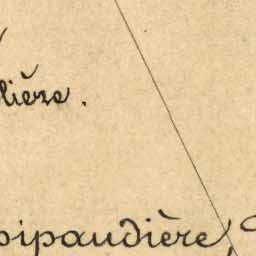 lière.
pipaudière,